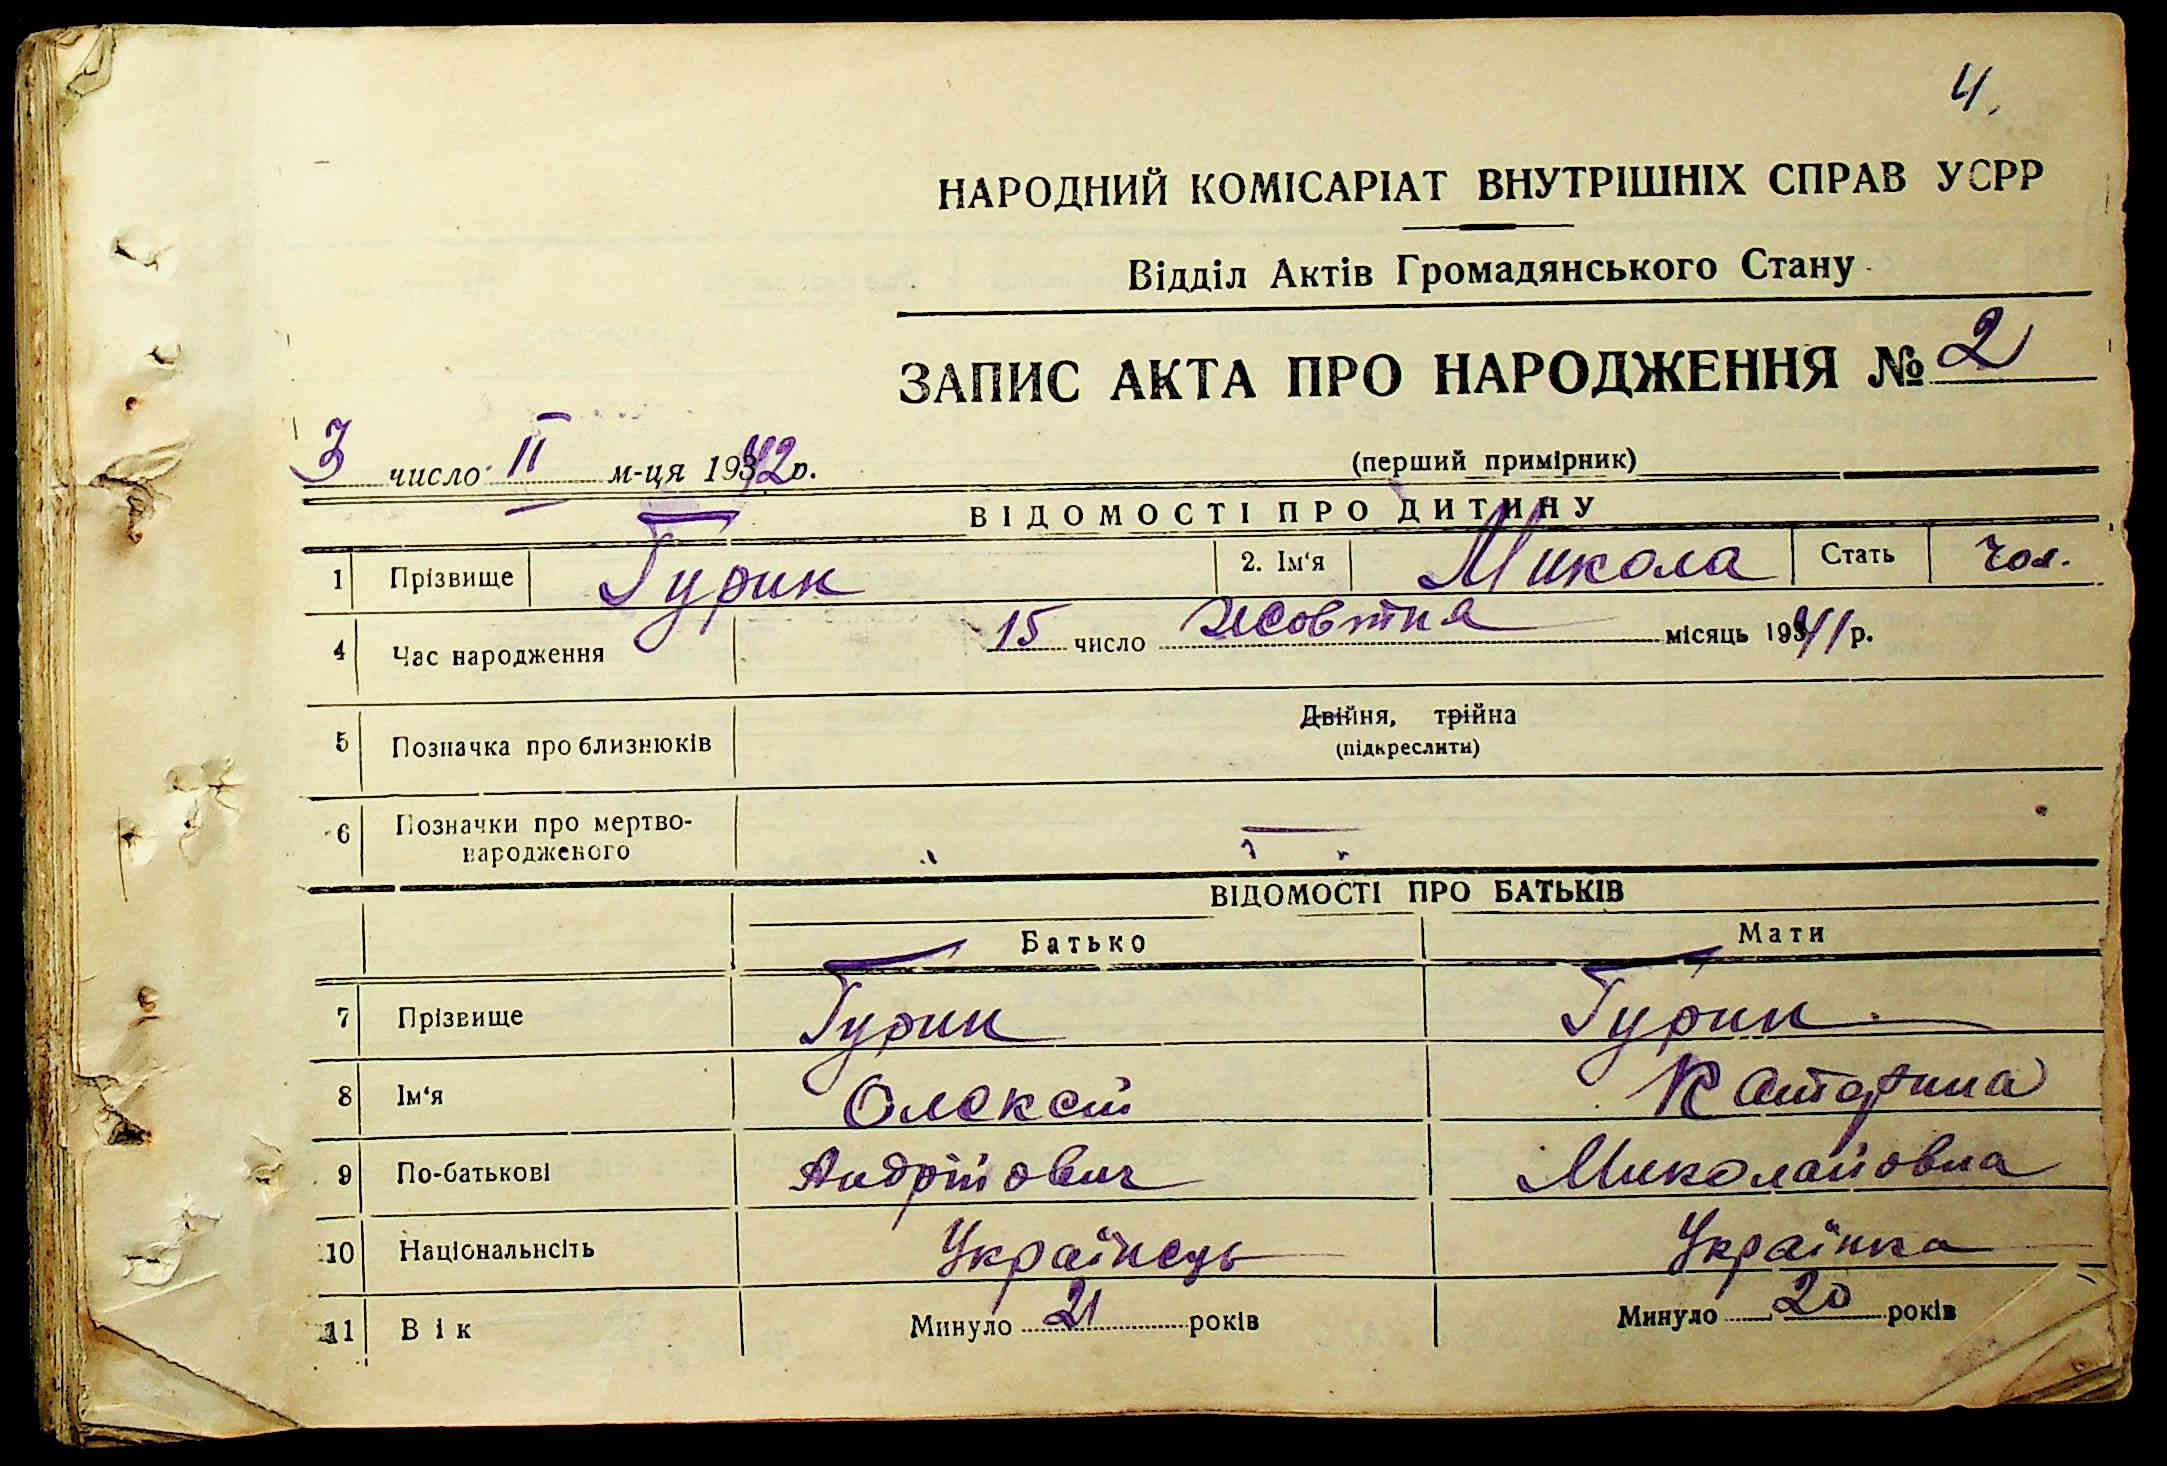 4.
НАРОДНИЙ КОМІСАРІАТ ВНУТРІШНІХ СПРАВ УСРР
Відділ Актів Громадянського Стану
ЗАПИС АКТА ПРО НАРОДЖЕННЯ № 2
3 число II м-ця 1942 р.
(перший примірник)
ВІДОМОСТІ ПРО ДИТИНУ
1 Прізвище Гурин 2. Ім‘я Микола Стать Чол.
4 Час народження 15 число Жовтня місяць 1941 р.
5 Позначка про близнюків Двійня, трійна
(підкреслити)
6 Позначки про мертво-
народженого —
ВІДОМОСТІ ПРО БАТЬКІВ
Батько Мати
7 Прізвище Гурин Гурин
8 Ім‘я Олексій Катерина
9 По-батькові Андрійович Миколаївна
10 Національнсіть Українець Українка
11 Вік Минуло 21 років Минуло 20 років